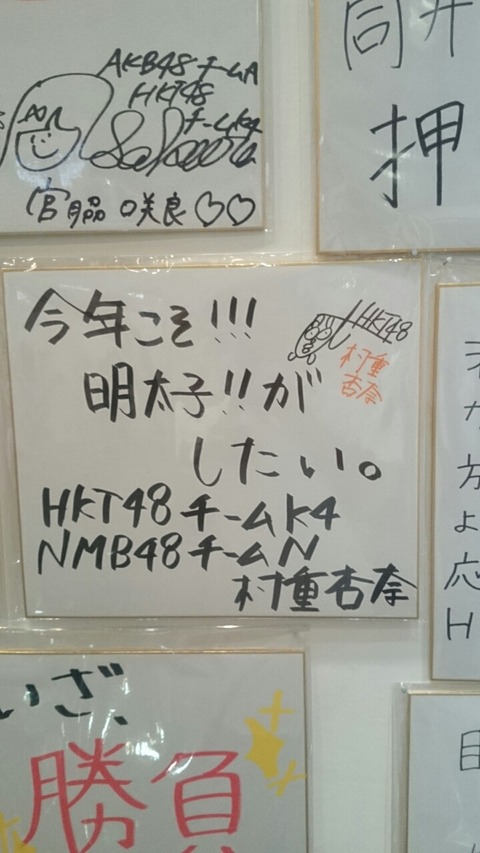 AKB48 チームA
HKT48
チームK4
宮脇 咲良♡♡
筒井
押
今年こそ!!!
明太子!!が
したい。
HKT48
村重
杏奈
HKT48 チームK4
NMB48 チームN
村重杏奈
方
よ
応
H
いざ、
勝負
目